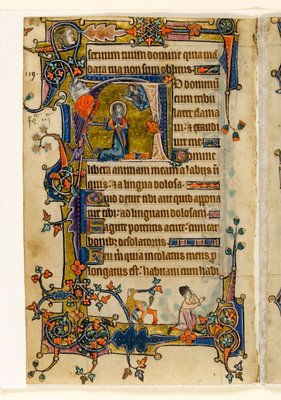 119.
servum tuum domine quia man
data tua non sum oblitus.
D dominū
cum tribu
larer clama
vi: & exaudi
vit me
Domine
libera animam meam a labiis in
iquis: & a lingua dolosa.
Quid detur tibi aut quid appon
atur tibi: ad linguam dolosam
Sagitte potentis acute: cum car
bonibus desolatoriis
Heu m̄ quia incolatus meus p̄
longatus est: habitavi cum habi